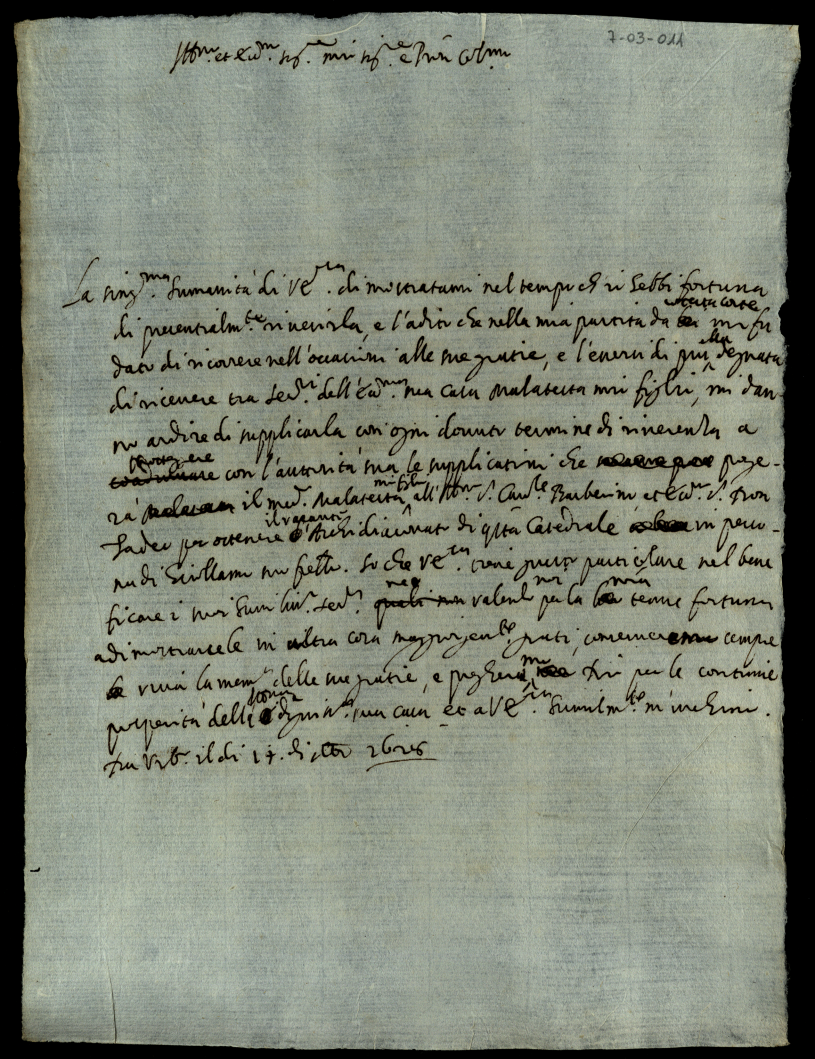 7-03-011
Ill.mo et Ecc.mo sig.re mio sig.re e Pron Col.mo
La sing.ma humanità di V.E.za dimostratami nel tempo ch'io hebbi fortuna
di presentialm.te riverirla, e l'adito che nella mia partita da cotesta corte mi fu
dato di ricorrere nell'occasioni alle sue gratie, e l'esersi di più ella degnata
di ricevere tra ser.ri dell'Ecc.ma sua Casa Malatesta mio figlio, mi dan-
no ardire di supplicarla con ogni dovuto termine di riverenza a
proteggere con l'autorità sua le supplicationi che porge-
rà il med.o Malatesta mio figlio all'Ill.mo S. Card.le Barberino et Ecc.mo S. Don
Tadeo per ottenere il vacante Archidiaconato di q.sta Catedrale in perso-
na di Girollamo suo fr̃ello. So che V.E.za tiene gusto particolare nel bene
ficare i suoi humiliss. ser.ri non valendo noi per la nostra tenue fortuna
a dimostrarcele in altra cosa maggiormente grati, conserveremo sempre
viva la mem.a delle sue gratie, e pregheremo Dio per le continue
prosperità della sua casa et a V.E.za humilm.te m'inchino.
Da Urb.o il dì 17. di 1626